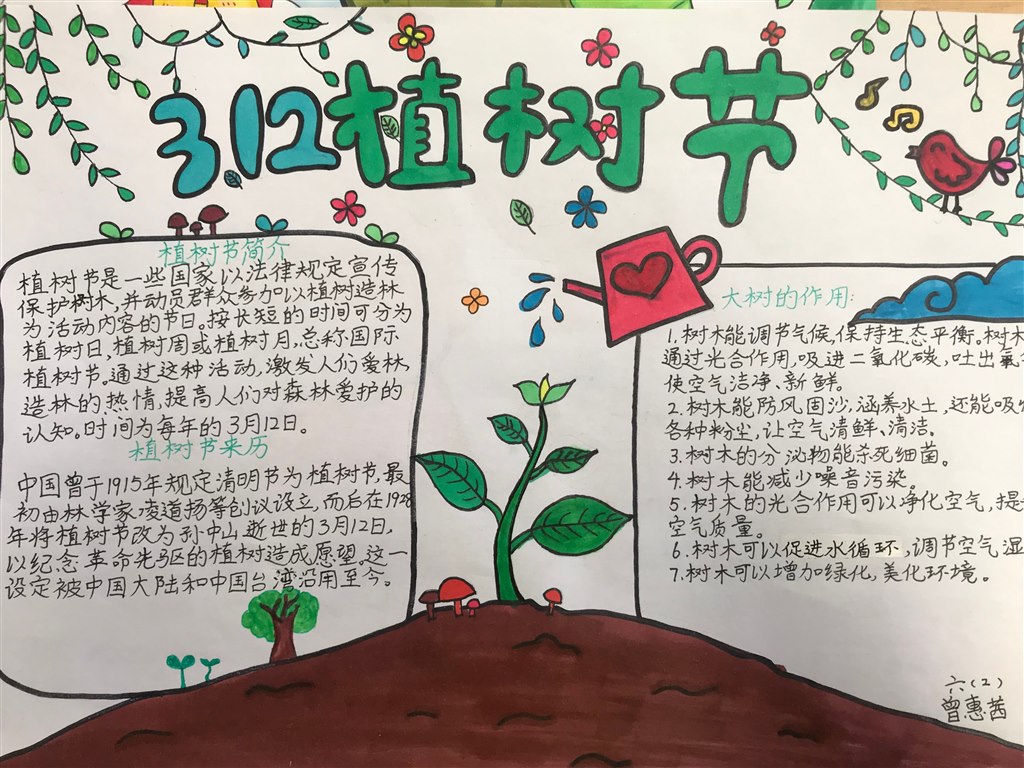 3.12植树节
植树节简介
植树节是一些国家以法律规定宣传
保护树木,并动员群众参加以植树造林
为活动内容的节日。按长短的时间可分为
植树日,植树周或植树月,总称国际
植树节。通过这种活动,激发人们爱林、
造林的热情,提高人们对森林爱护的
认知。时间为每年的3月12日。
植树节来历
中国曾于1915年规定清明节为植树节,最
初由林学家凌道扬等创议设立,而后在1928
年将植树节改为孙中山逝世的3月12日,
以纪念革命先驱的植树造成愿望。这一
设定被中国大陆和中国台湾沿用至今。
大树的作用:
1.树木能调节气候,保持生态平衡。树木
通过光合作用,吸进二氧化碳,吐出氧
使空气洁净、新鲜。
2.树木能防风固沙,涵养水土,还能吸
各种粉尘,让空气清鲜、清洁。
3.树木的分泌物能杀死细菌。
4.树木能减少噪音污染。
5.树木的光合作用可以净化空气,提
空气质量。
6.树木可以促进水循环,调节空气湿
7.树木可以增加绿化,美化环境。
六(2)
曾惠茜